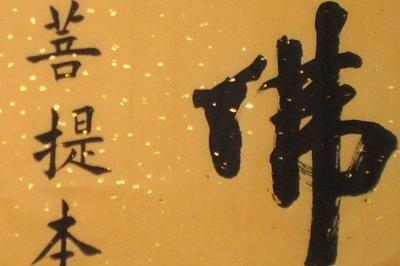 佛
菩提本